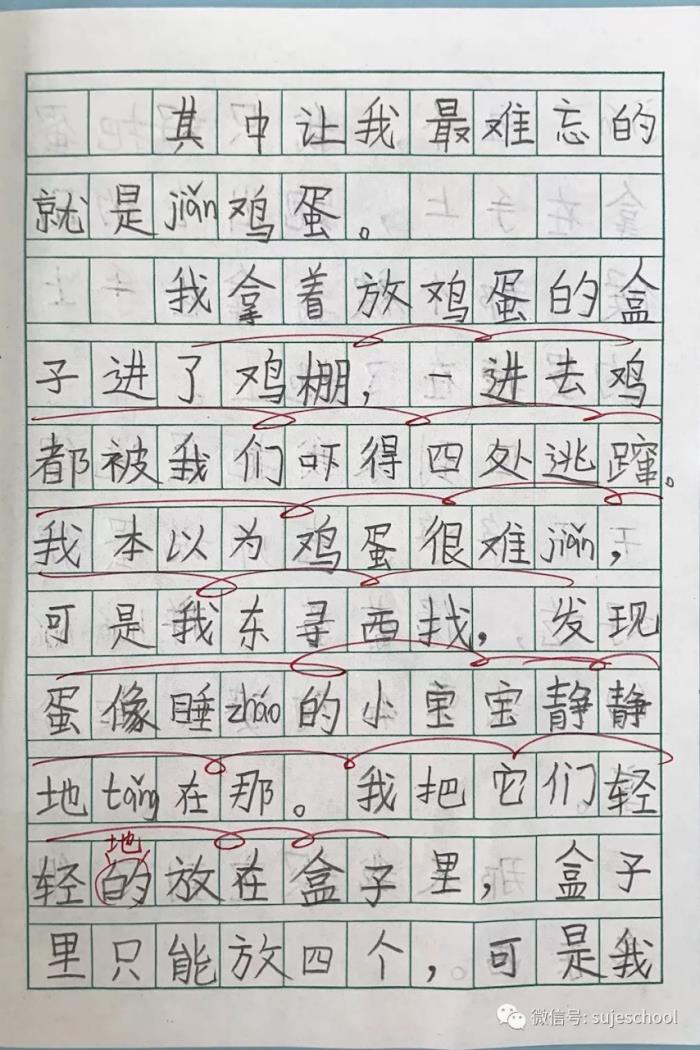 其中让我最难忘的
就是jiǎn鸡蛋。
我拿着放鸡蛋的盒
子进了鸡棚，一进去鸡
都被我们吓得四处逃蹿。
我本以为鸡蛋很难jiǎn，
可是我东寻西找，发现
蛋像睡zháo的小宝宝静静
地tǎng在那。我把它们轻
地
轻的放在盒子里，盒子
里只能放四个，可是我
微信号: sujeschool